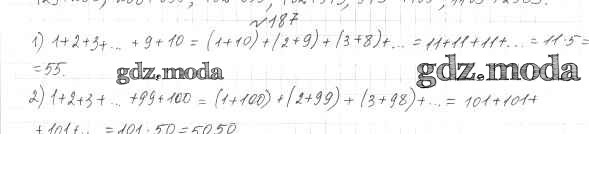 №187
1) 1+2+3+... +9+10 = (1+10)+(2+9)+(3+8)+... = 11+11+11+... = 11·5=
=55.
gdz.moda
gdz.moda
2) 1+2+3+... +99+100 = (1+100)+(2+99)+(3+98)+... = 101+101+
+101+.. = 101·50=5050